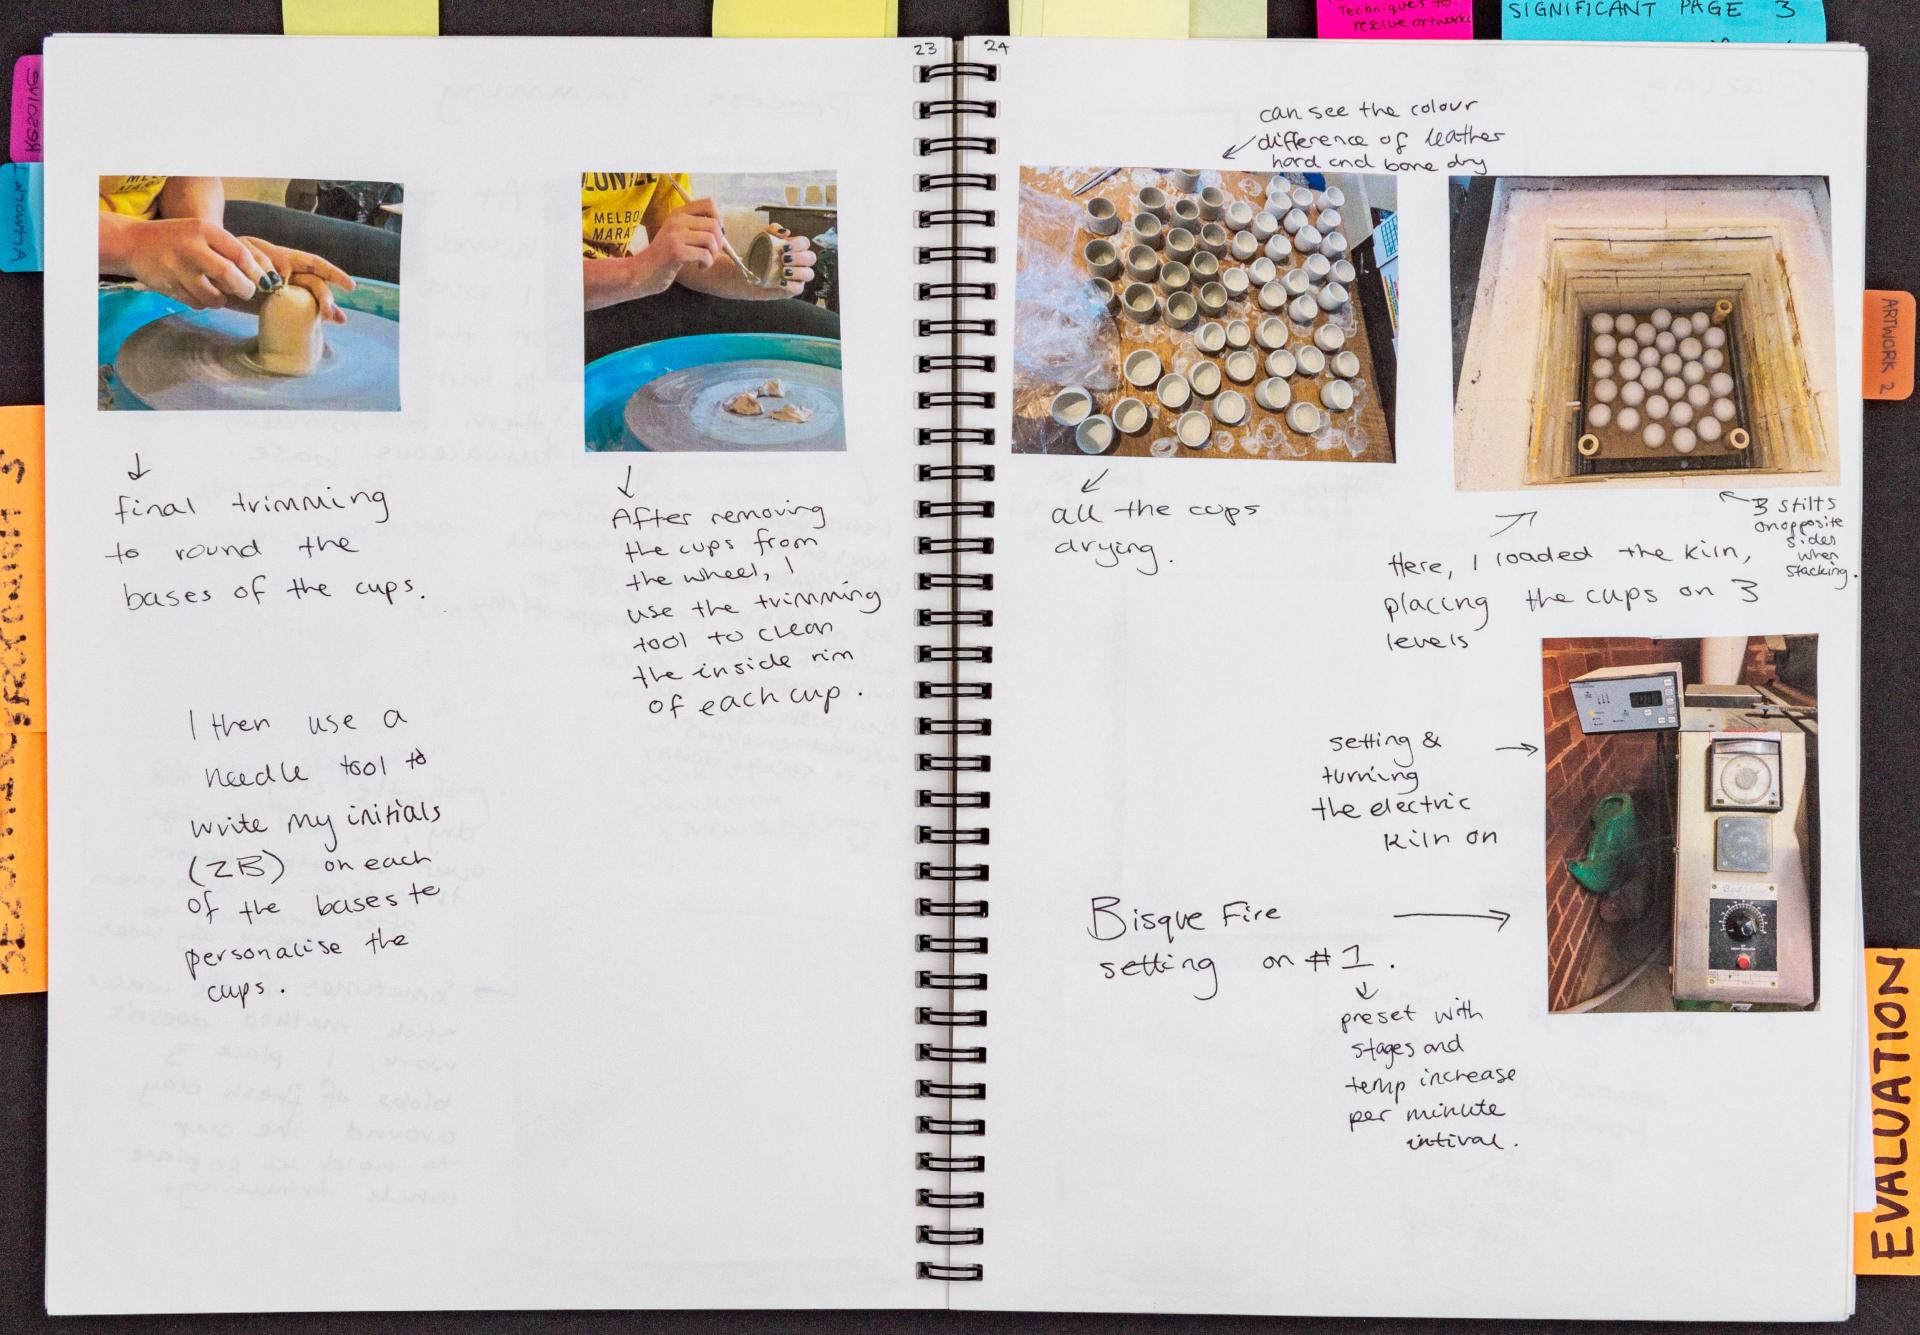 Techniques to
resolve artworks
SIGNIFICANT PAGE 3
RESOLVING
ARTWORK 1
23
24
can see the colour
difference of leather
hard and bone dry
MELBO
MARA
final trimming
to round the
bases of the cups.
After removing
the cups from
the wheel, I
use the trimming
tool to clean
the inside rim
of each cup.
I then use a
needle tool to
write my initials
(ZB) on each
of the bases to
personalise the
cups.
all the cups
drying.
Here, I loaded the kiln,
placing the cups on 3
levels
3 stilts
on opposite
sides
when
stacking.
setting &
turning
the electric
kiln on
Bisque Fire
setting on #1.
preset with
stages and
temp increase
per minute
intival.
ARTWORK 2
EVALUATION